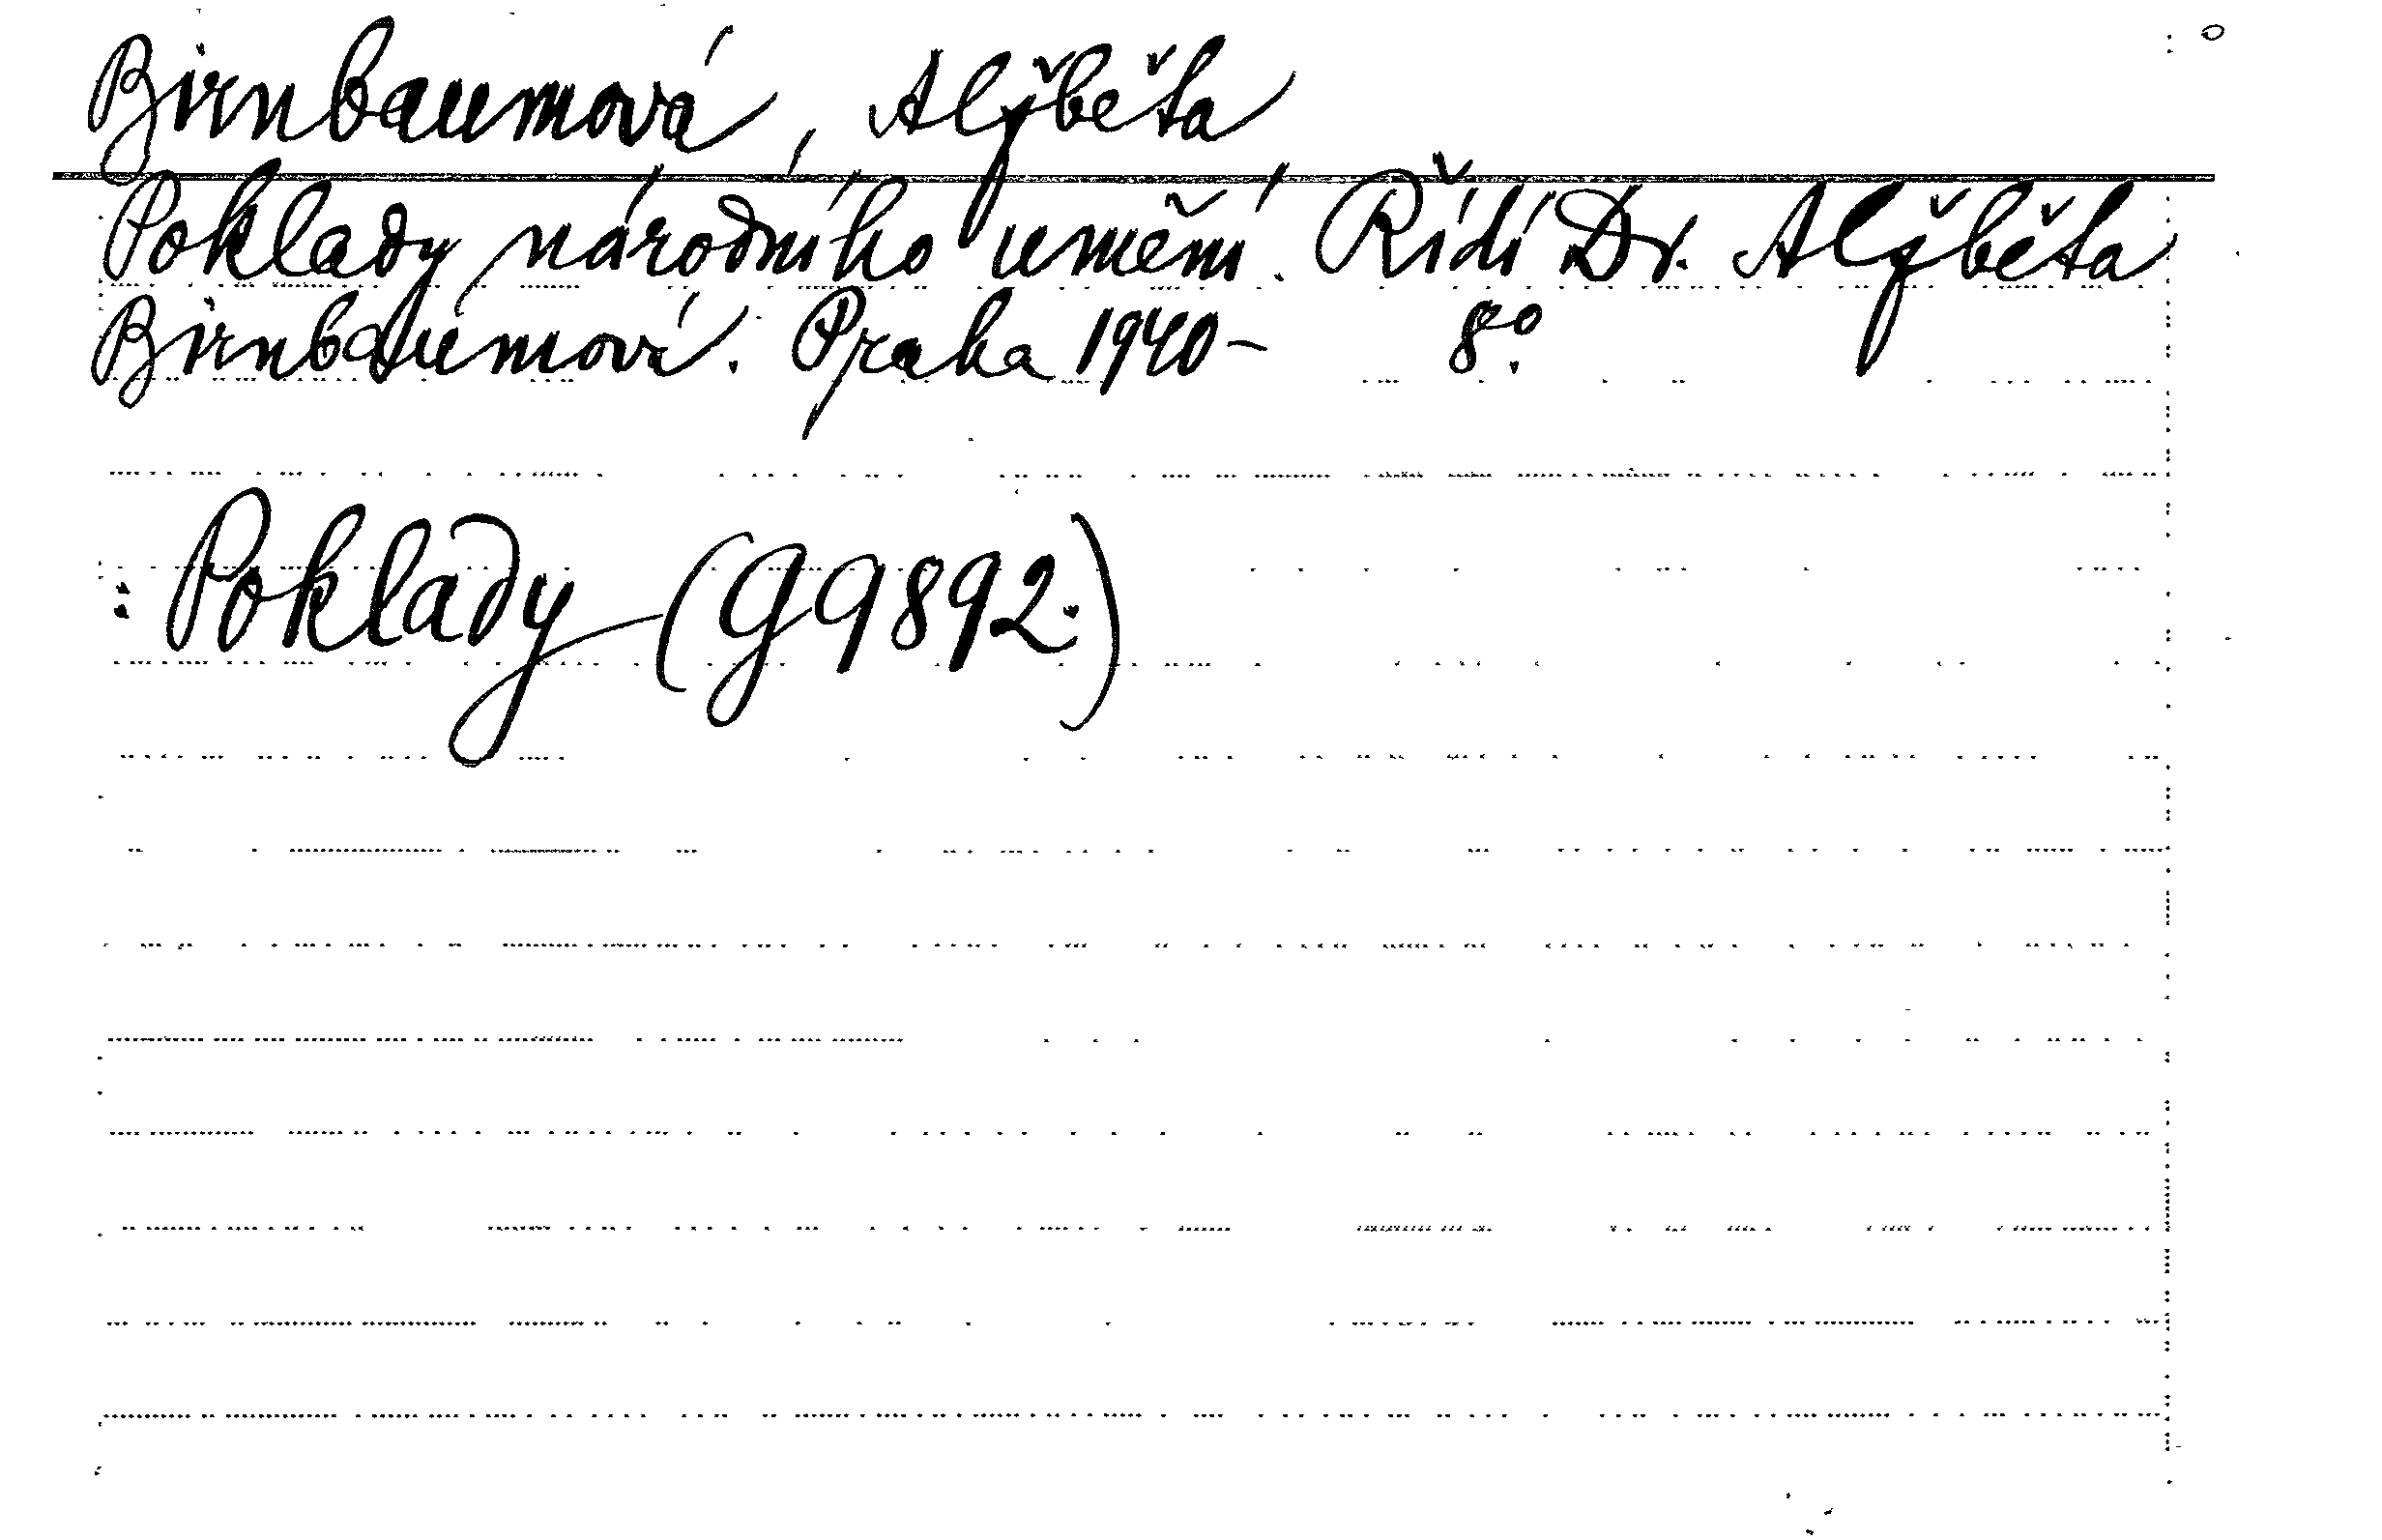 Birnbaumová, Alžběta
Poklady národního umění. Řídí Dr. Alžběta
Birnbaumová. Praha 1940- 8°.
: Poklady (G 9892.)